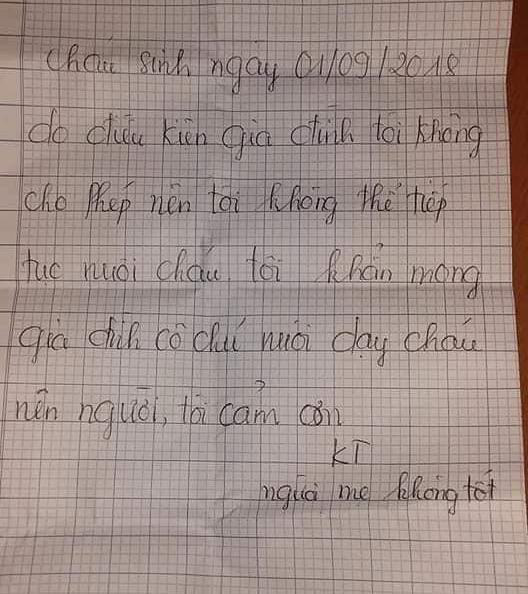 Cháu sinh ngày 01/09/2018
do điều kiện gia đình tôi không
cho phép nên tôi không thể tiếp
tục nuôi cháu. tôi khẩn mong
gia đình cô chú nuôi dạy cháu
nên người, tôi cảm ơn
KT
người mẹ không tốt